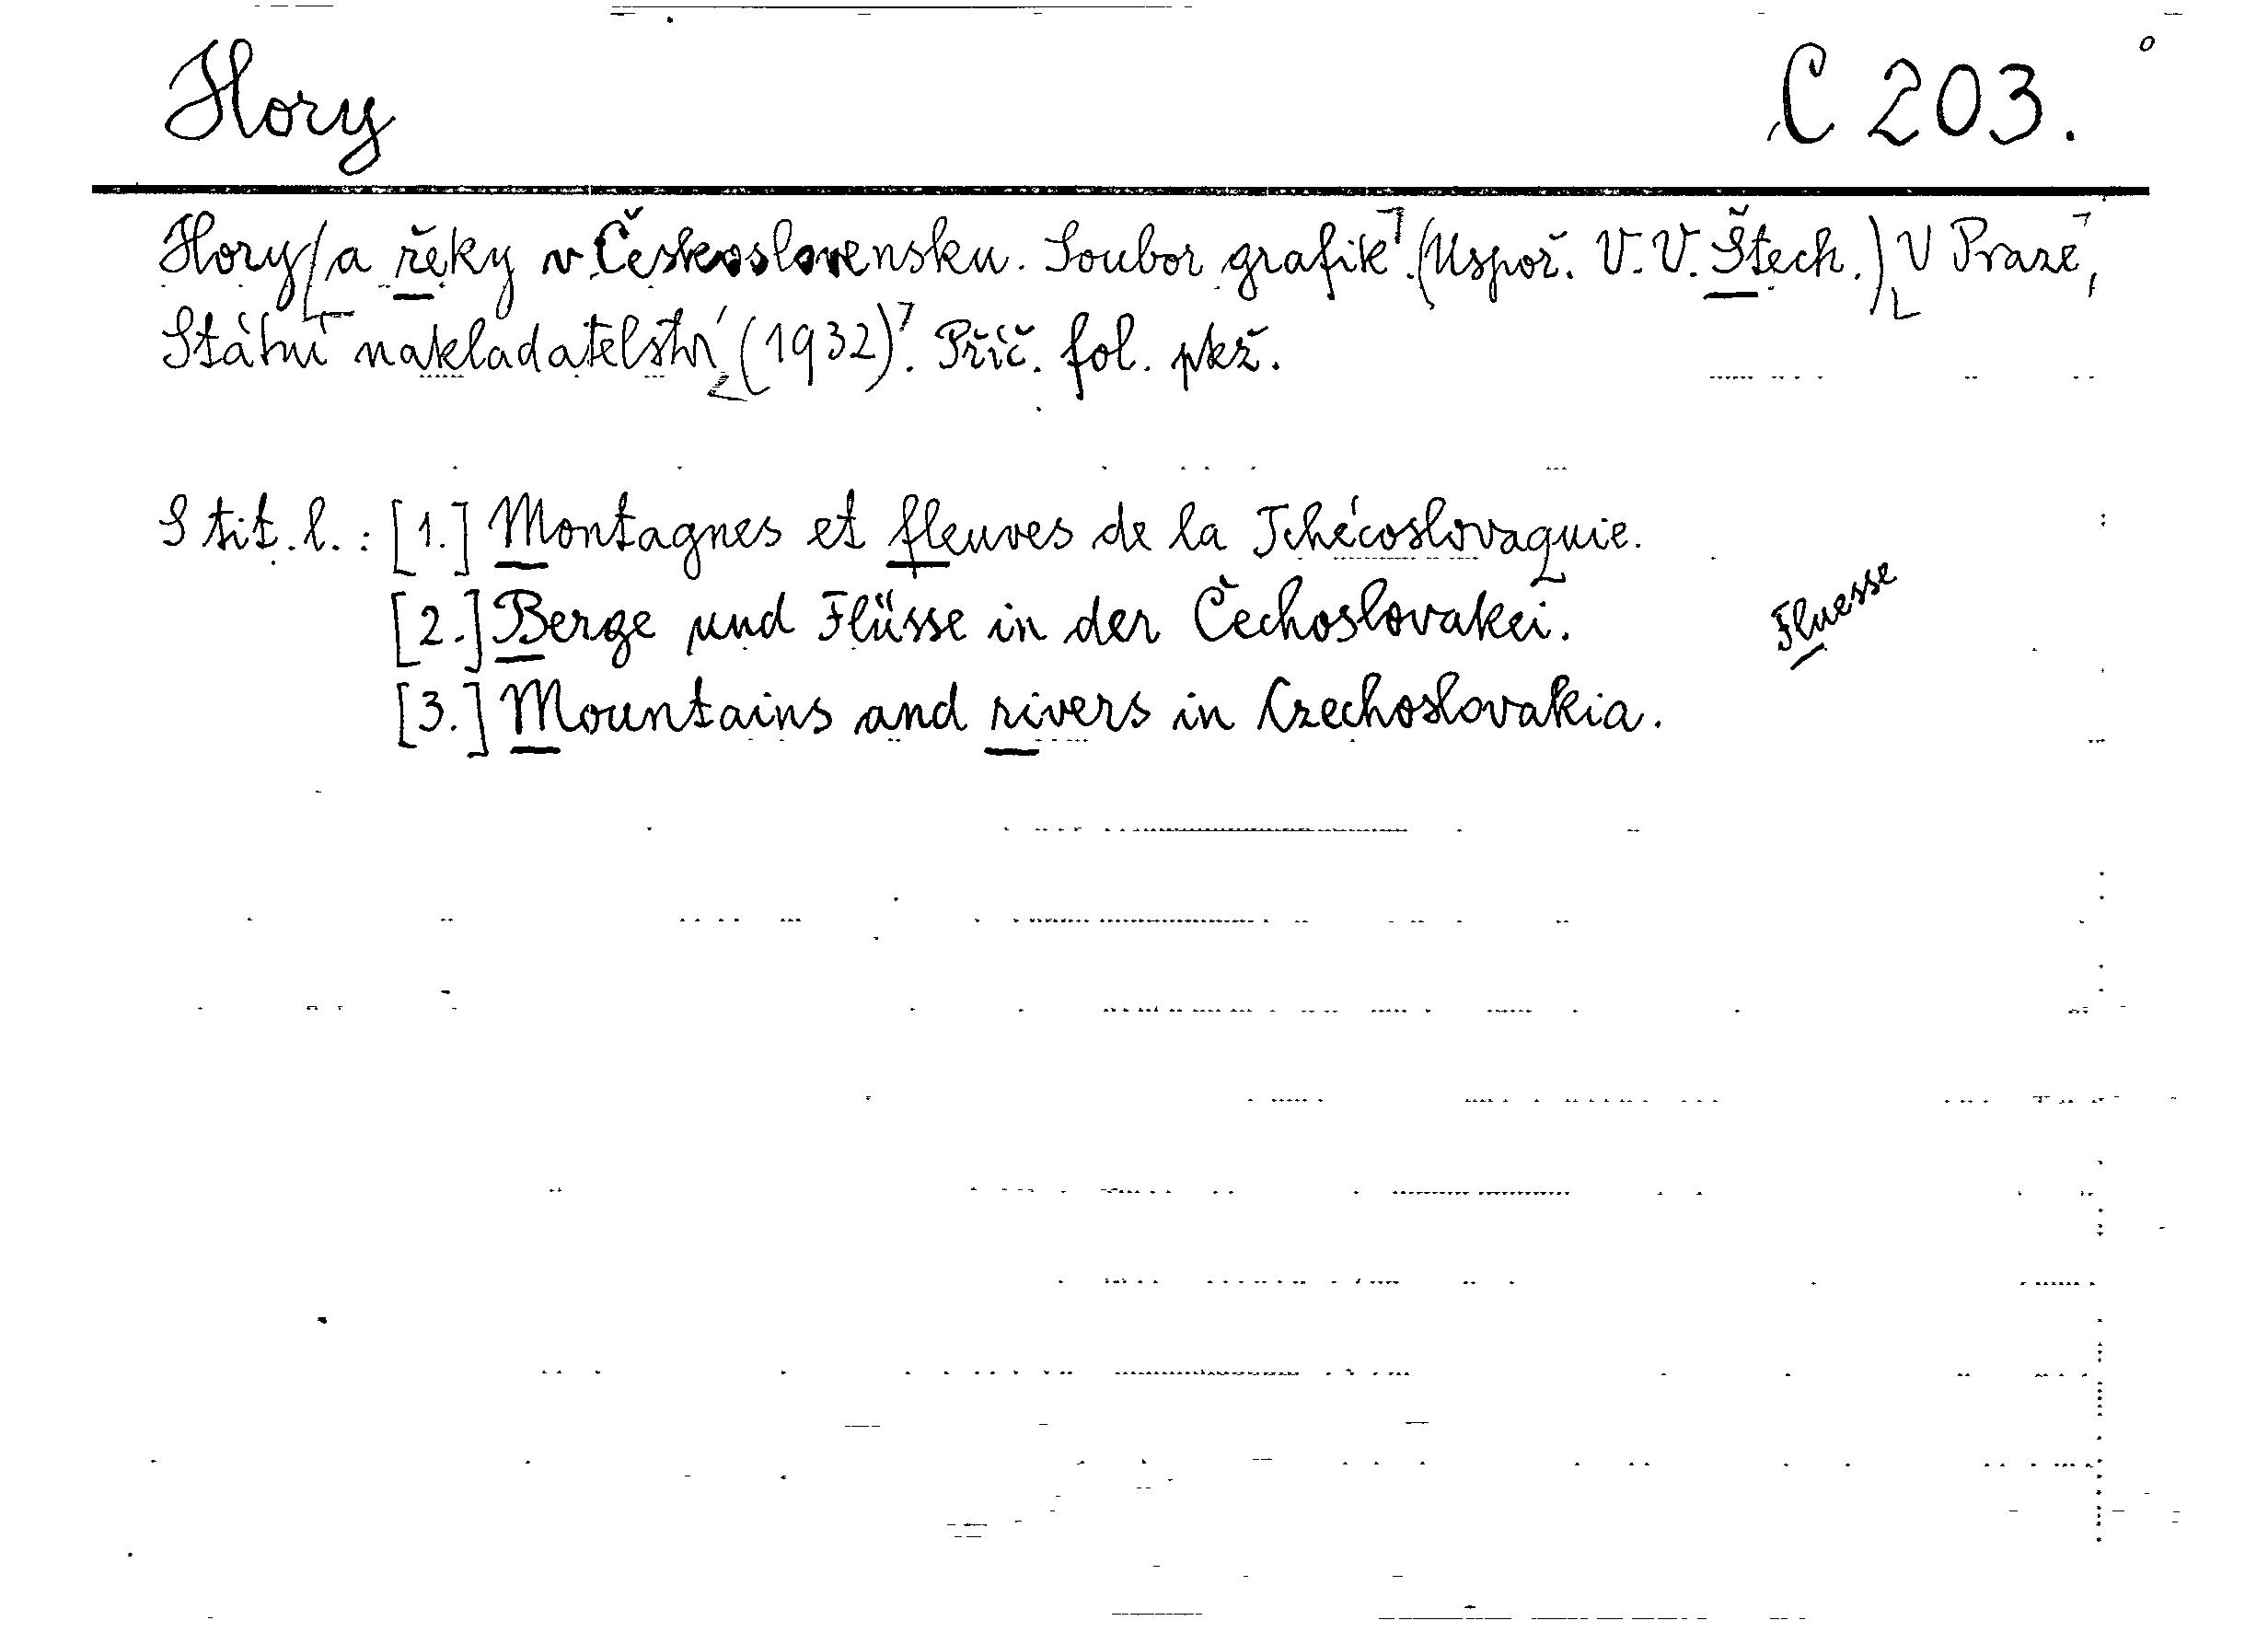 Hory C 203.
Hory a řeky v Československu. Soubor grafik. (Uspoř. V. V. Štech.) V Praze,
Státní nakladatelství (1932). Příč. fol. pkž.
S tit. l.: [1.] Montagnes et fleuves de la Tchécoslovaquie.
[2.] Berge und Flüsse in der Čechoslovakei. Fluesse
[3.] Mountains and rivers in Czechoslovakia.